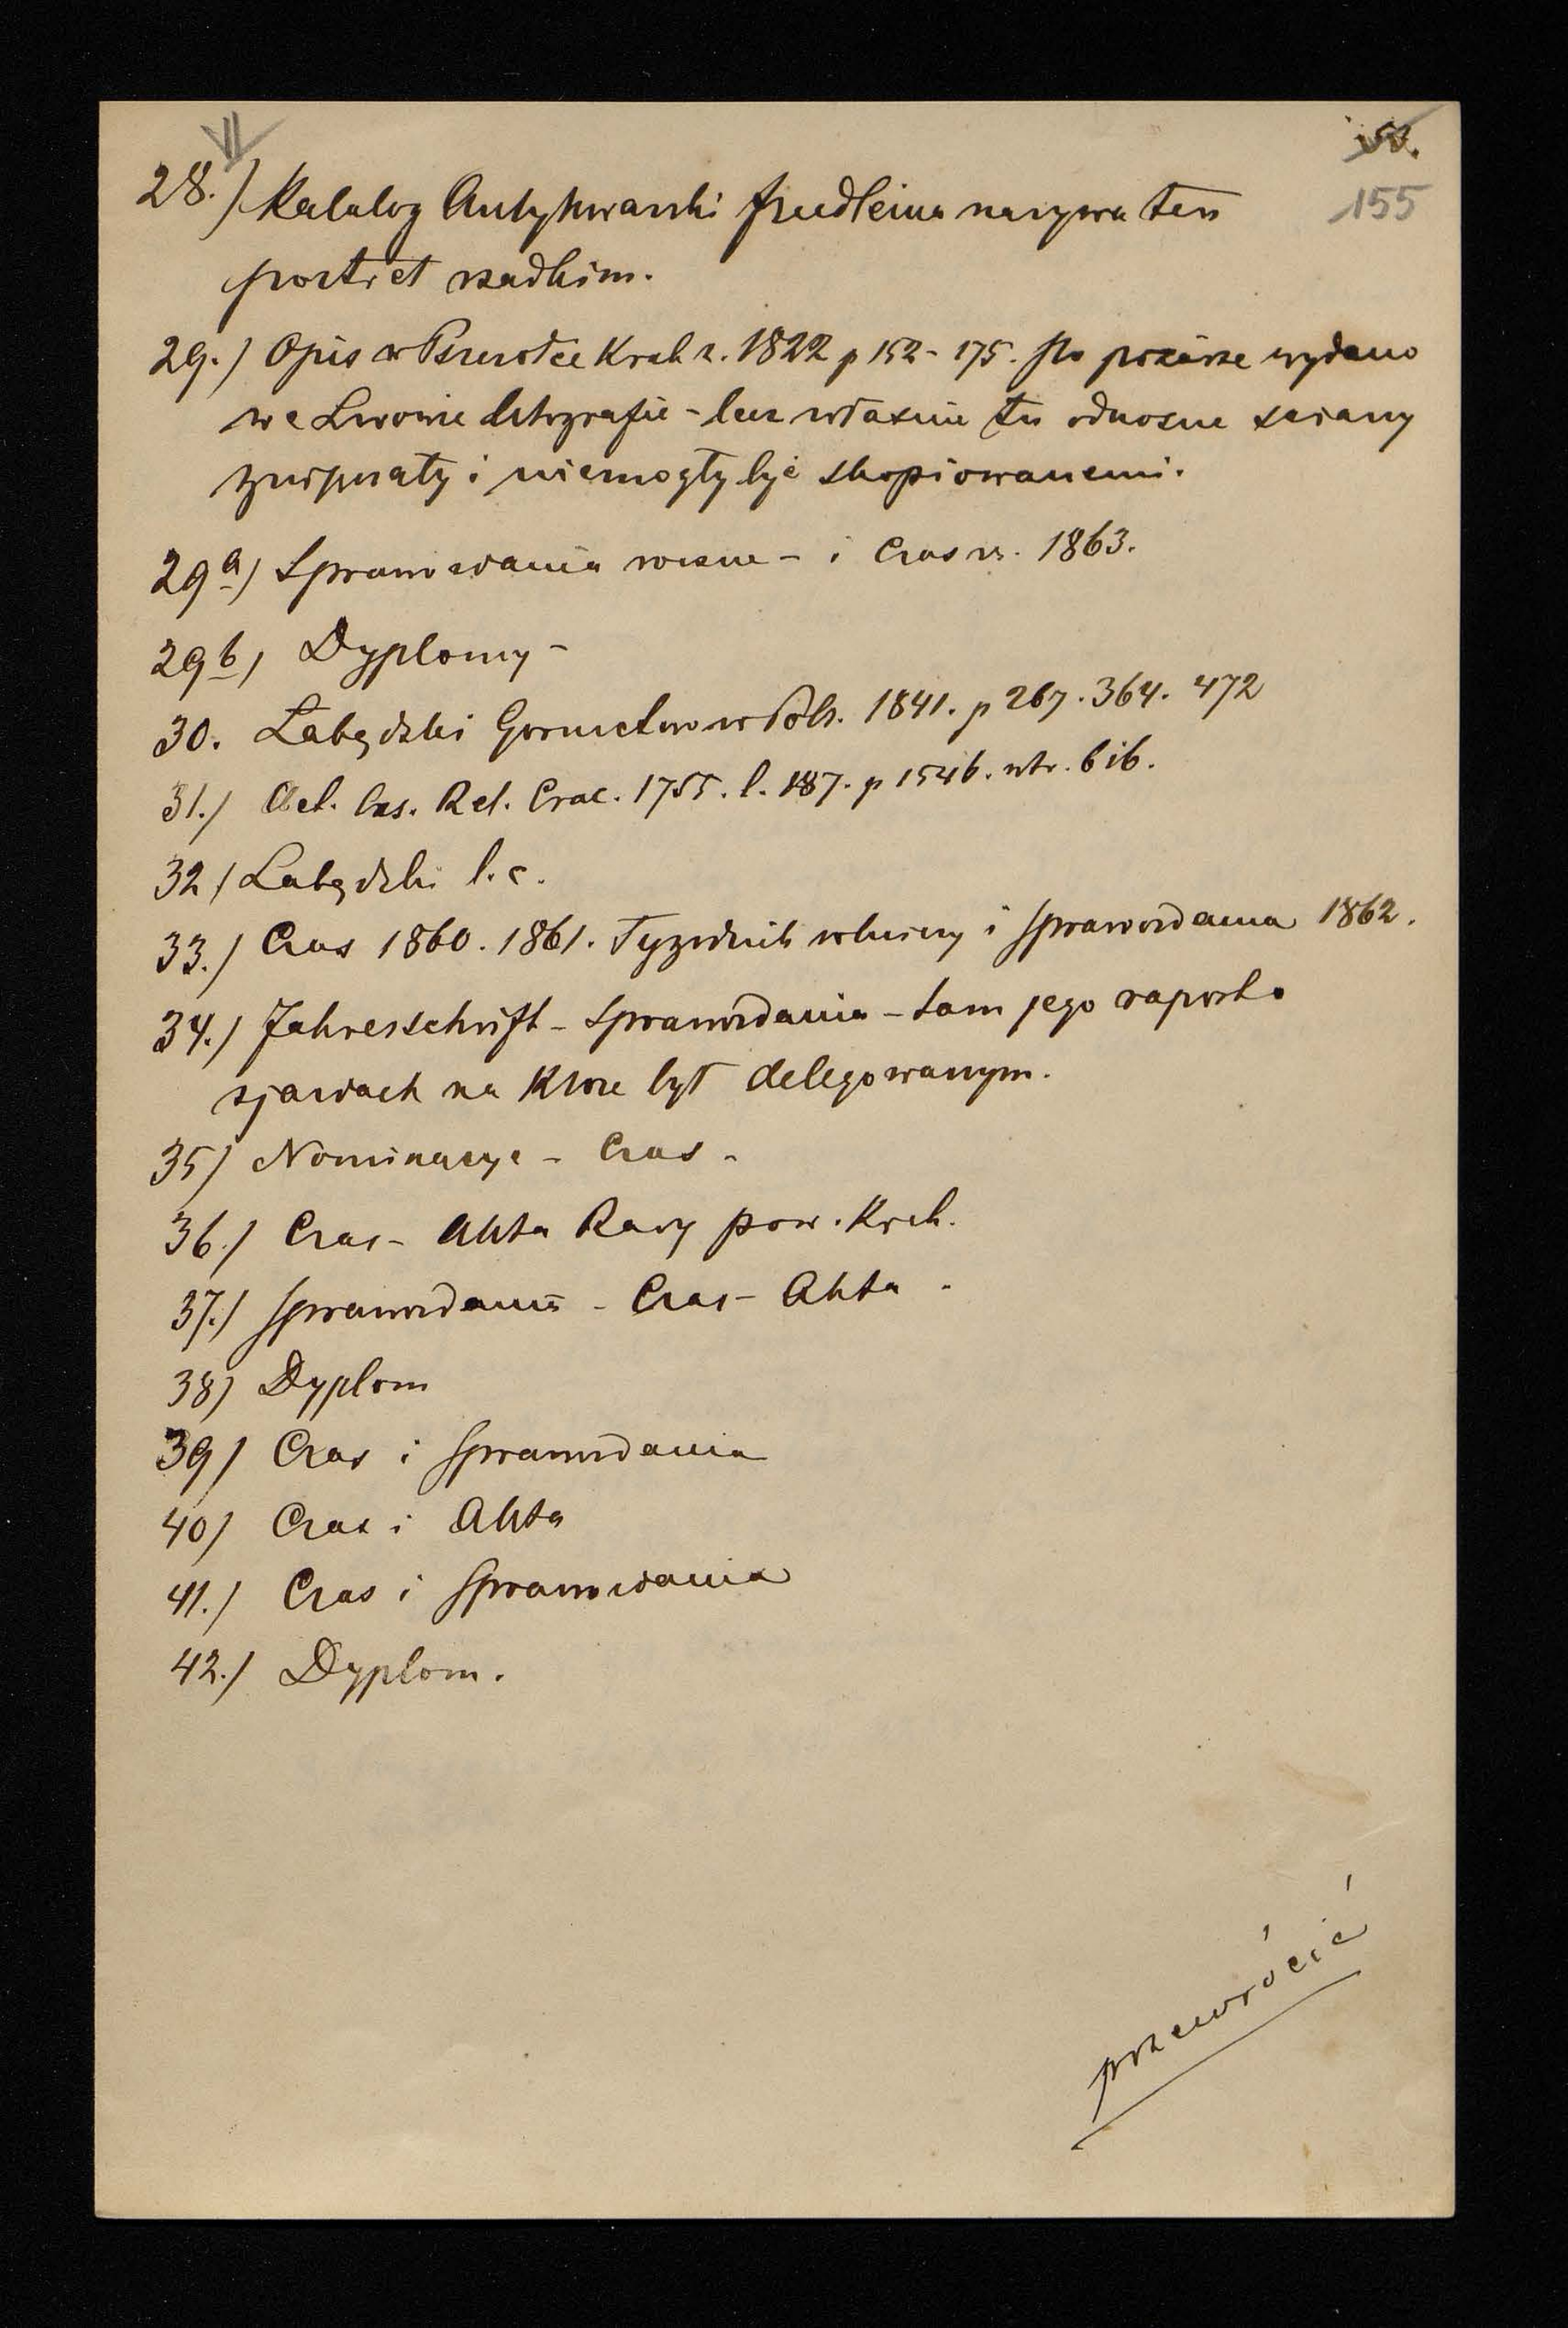 155
28.) Katalog Antykwarski Friedleina nazywa ten
portret rzadkim.
29.) Opis w Pszczółce Krak r. 1822 p 152-175. Po pożarze wydano
we Lwowie litografie - lecz własnie tu odnosne sciany
i niemogły być skopiowanemi.
29a) Sprawozdania rożne - i Czas r. 1863.
29b) Dyplomy -
30. Łabędzki Gornictwo w Pols. 1841. p 267. 364. 472
31.) Act. Cas. Rel. Crac. 1755. l. 187. p 1546. bib.
32) Łabędzki l.c.
33.) Czas 1860. 1861. Tygodnik rolniczy i Sprawozdania 1862.
34.) Jahresschrift - Sprawozdania - tam jego raport o
zjazdach na ktore był delegowanym.
35) Nominacye - Czas -
36.) Czas - Akta Rady pow. Krak.
37.) Sprawozdania - Czas - Akta -
38) Dyplom
39) Czas i Sprawozdania
40) Czas i Akta
41.) Czas i Sprawozdania
42.) Dyplom.
przewrócić